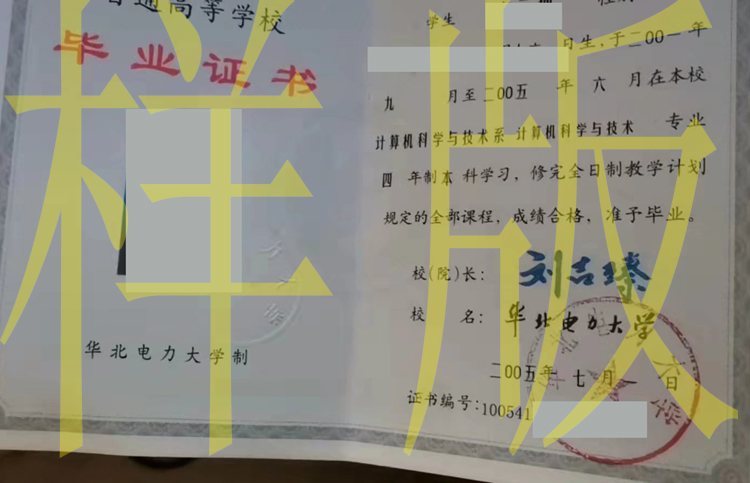 普通高等学校
毕业证书
华北电力大学制
学生
日生，于二〇〇一年
九 月至二〇〇五 年 六 月在本校
计算机科学与技术系 计算机科学与技术 专业
四 年制本 科学习，修完全日制教学计划
规定的全部课程，成绩合格，准予毕业。
校(院)长： 刘吉臻
校 名： 华北电力大学
二〇〇五年 七 月 一 日
证书编号：100541
样版